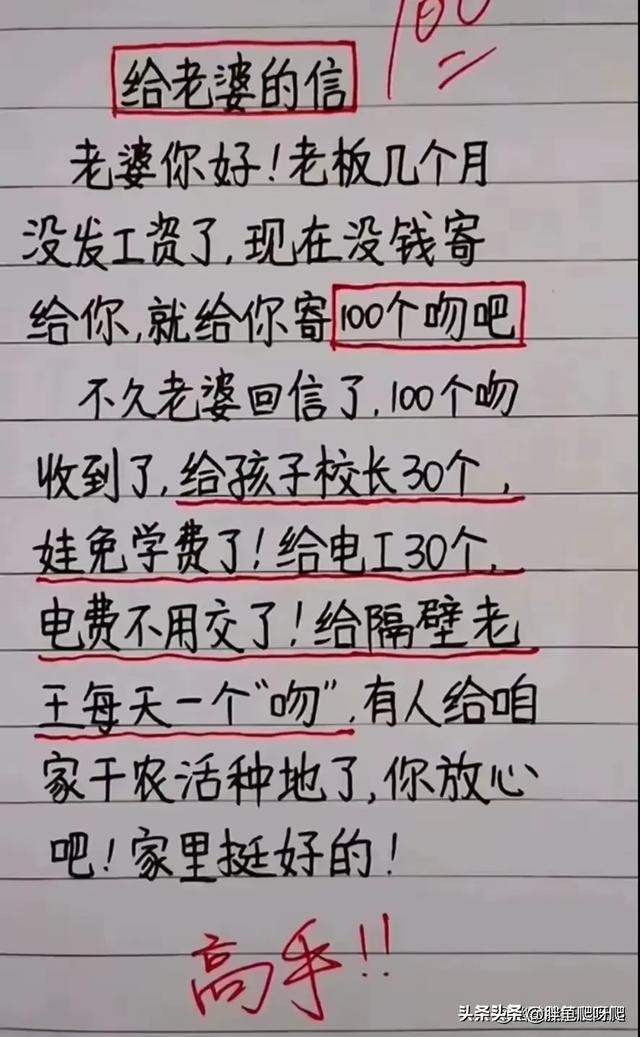 100
给老婆的信
老婆你好！老板几个月
没发工资了,现在没钱寄
给你,就给你寄100个吻吧
不久老婆回信了,100个吻
收到了,给孩子校长30个,
娃免学费了！给电工30个,
电费不用交了！给隔壁老
王每天一个“吻”,有人给咱
家干农活种地了,你放心
吧！家里挺好的！
高手!!
头条头条 @胖笔爬呀爬